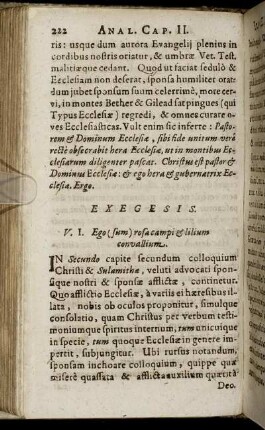 222 ANAL. CAP. II.
ris: usque dum aurora Evangelij plenius in
cordibus nostris oriatur, & umbræ Vet. Test.
malitiæque cedant. Quod ut faciat sedulò &
Ecclesiam non deserat, sponsa humiliter orat:
dum jubet sponsum suum celerrimè, more cer-
vi, in montes Bether & Gilead satpingues (qui
Typus Ecclesiæ) regredi, & omnes curare o-
ves Ecclesiasticas. Vult enim sic inferre: Pasto-
rem & Dominum Ecclesiæ, sibi fide unitum verè
rectè obsecrabit hera Ecclesiæ, ut in montibus Ec-
clesiarum diligenter pascat. Christus est pastor &
Dominus Ecclesiæ: & ego hera & gubernatrix Ec-
clesiæ. Ergo.
EXEGESIS.
V. 1. Ego (sum) rosa campi & lilium
convallium.
IN Secundo capite secundum colloquium
Christi & Sulamithæ, veluti advocati spon-
sique nostri & sponsæ afflictæ, continetur.
Quo afflictio Ecclesiæ, à variis ethæresibus il-
lata, nobis ob oculos proponitur, simulque
consolatio, quam Christus per verbum testi-
moniumque spiritus internum, tum unicuique
in specie, tum quoque Ecclesiæ in genere im-
pertit, subjungitur. Ubi rursus notandum,
sponsam inchoare colloquium, quippe quæ
miserè quassata & afflicta auxilium quærit à
Deo.